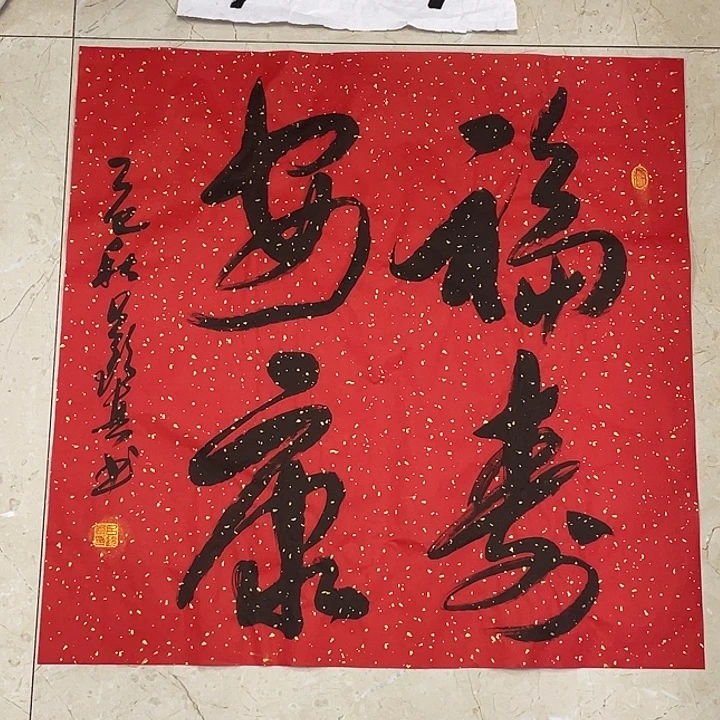 福寿
安康
乙巳秋
书